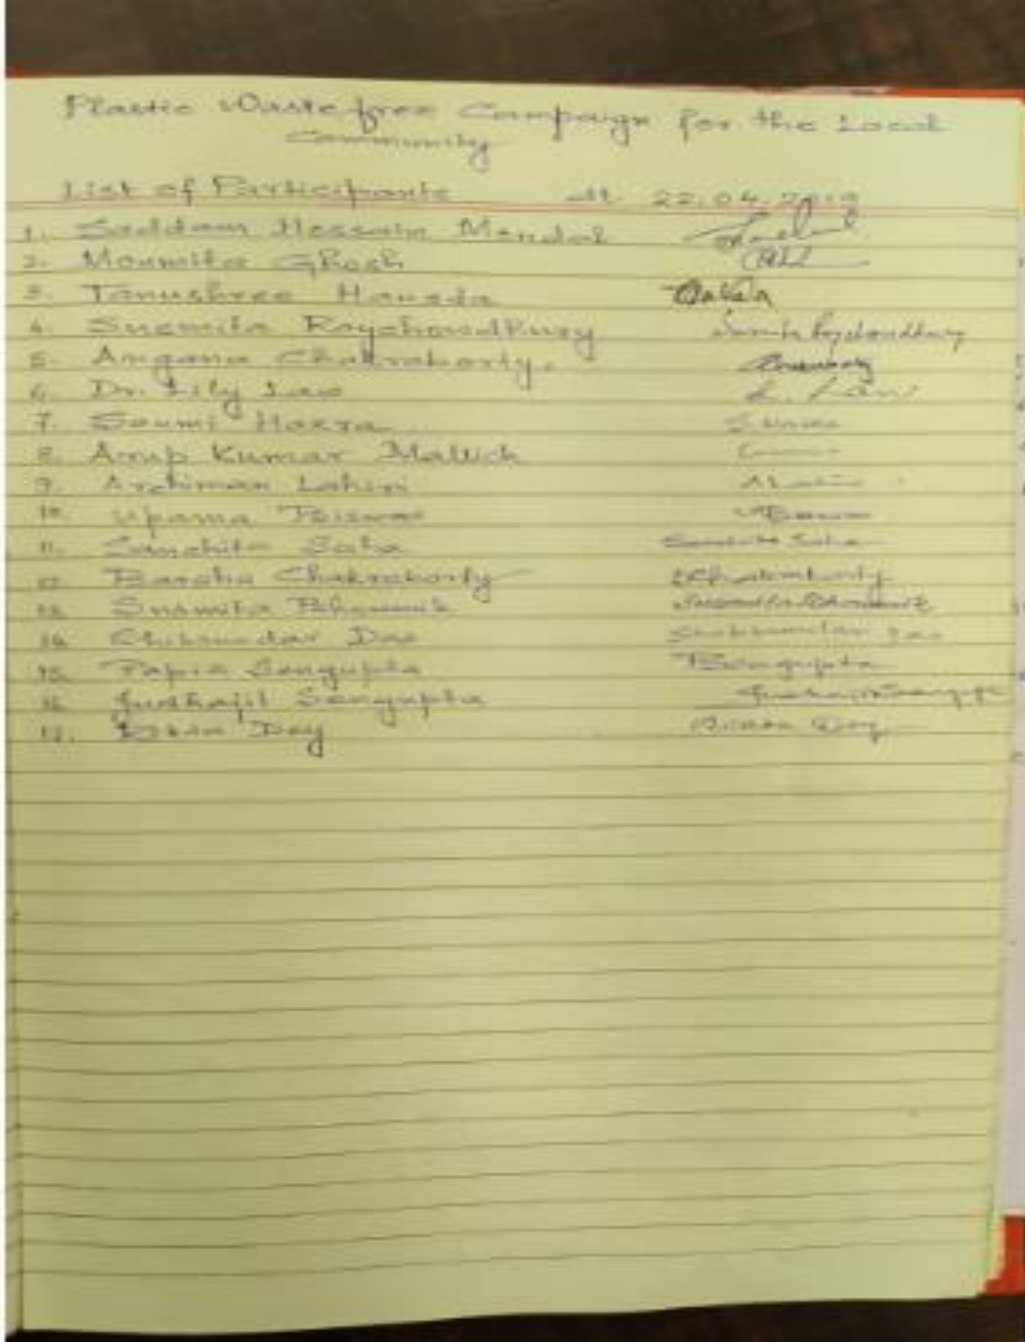 Plastic Waste free Campaign for the Local
Community
List of Participants dt. 22.04.2019
1. Saddam Hossain Mondal
2. Moumita Ghosh
3. Tanushree Hazra
4. Susmita Roychowdhury Susmita Roychowdhury
5. Angana Chakraborty.
6. Dr. Lily Law L. Law
7. Soumi Hazra
8. Arup Kumar Mallick
9. Archiman Lahiri
10. Upama Biswas
11. Sanchita Saha Sanchita Saha
12. Barsha Chakraborty Chakraborty
13. Susmita Bhowmik Susmita Bhowmik
14. Das Das
15. Papia Sengupta PSengupta
16. Judhajit Sengupta Judhajit Sengupta
17. Dey Dey